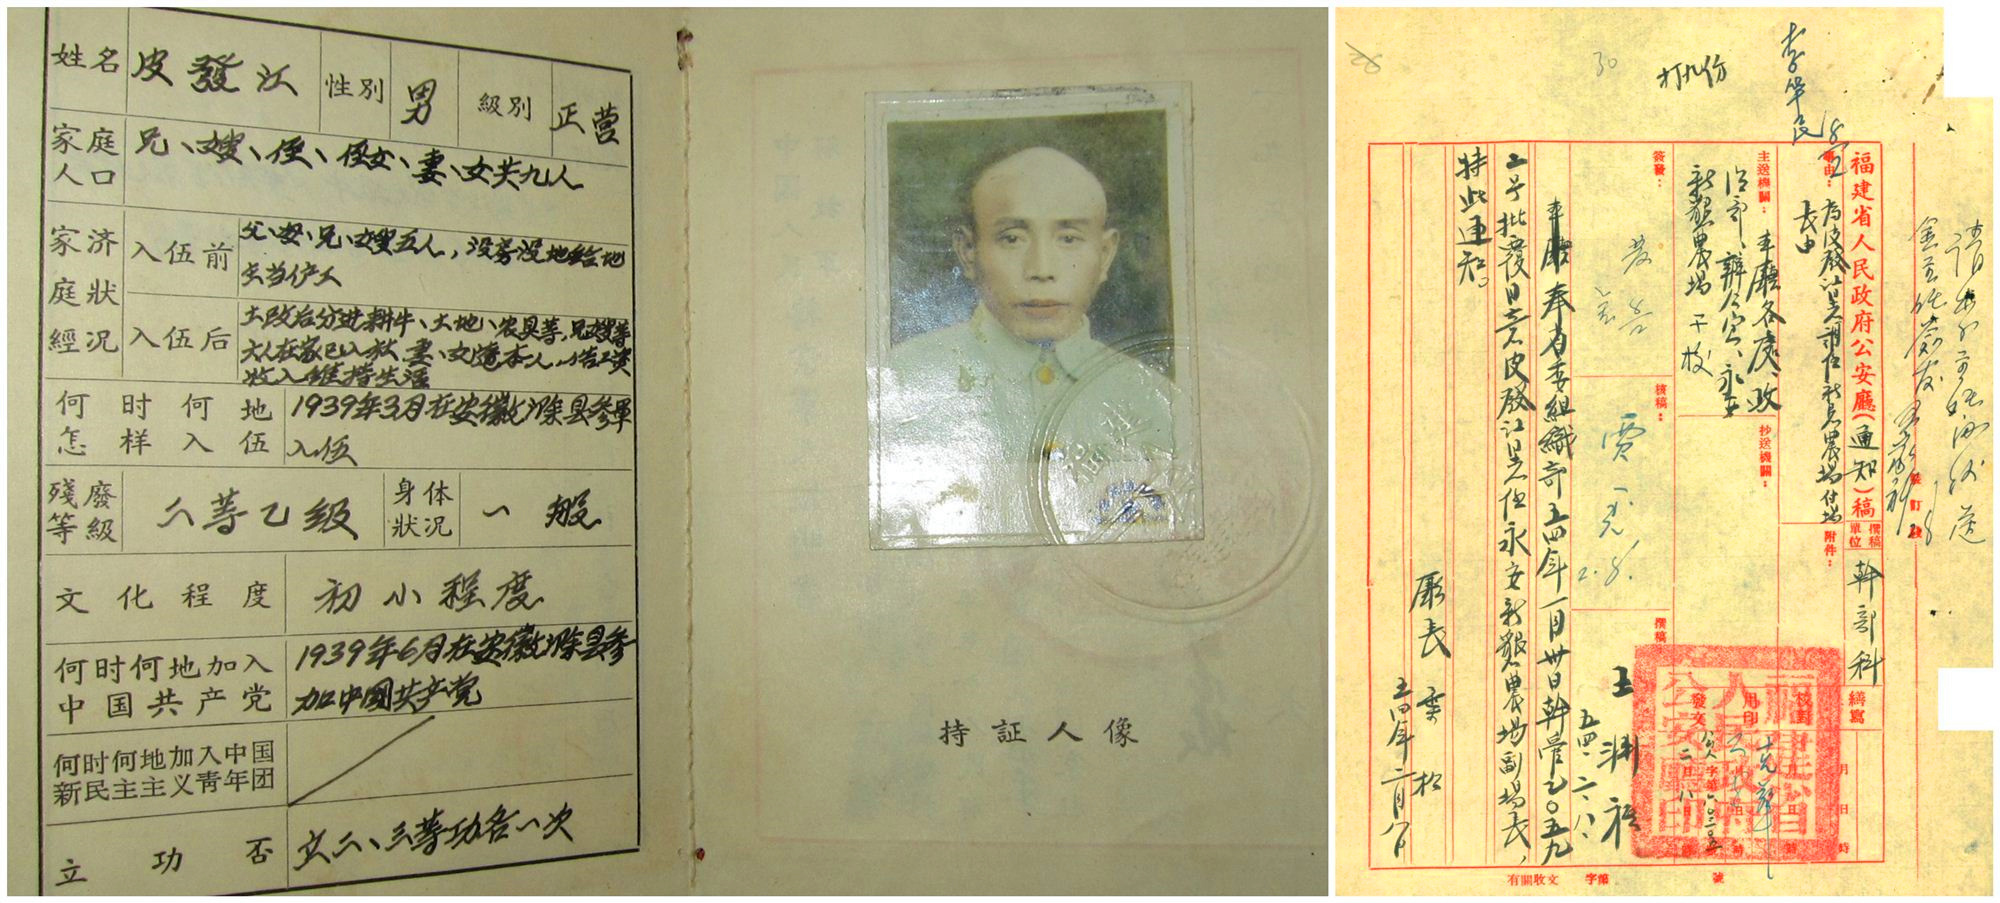 姓名 皮發江 性别 男 級别 正营
家庭人口 兄、嫂、侄、侄女、妻、女共九人
家庭經济狀况
入伍前 父、母、兄、嫂五人，没房没地給地
主当佣工
入伍后 土改后分进耕牛、土地、农具等，兄嫂等
六人在家已入社，妻、女随本人，借工资
收入維持生活
何时何地怎样入伍 1939年3月在安徽滁县參軍
入伍
殘廢等級 二等乙级 身体狀况 一般
文化程度 初小程度
何时何地加入中国共产党 1939年6月在安徽滁县參
加中國共产党
何时何地加入中国新民主主义青年团
立功否 立二、三等功各一次
持証人像
30
打九份
福建省人民政府公安廳（通知）稿
撰稿單位 幹部科
繕寫
事由： 為皮發江吴 任新垦農場付場
長由
附件：
主送機關： 本廳各處、政
治部、辦公室、永安
新墾農場 干校
抄送機關：
簽發：
核稿： 2.8.
撰稿 王 五四、二、八、
校對
用印
發文 公人字第六〇三五 二月八
月 日 時
本廳奉省委組織部五四年一月卅日幹管乙〇五九
二号批覆同意皮發江吴任永安新墾農場副場長，
特此通知。
廳長 葉松
五四年二月八日
裝訂線
福建省人民政府公安廳印
有關收文 字第 號